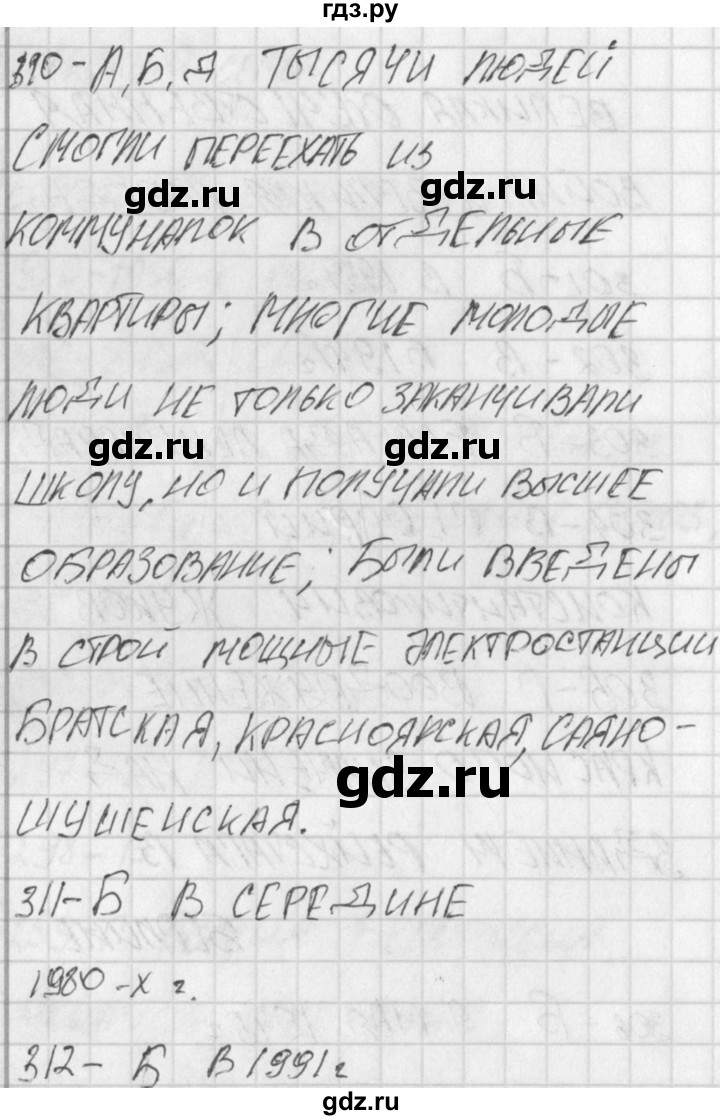 гдз.ру
310-А, Б, Д ТЫСЯЧИ ЛЮДЕЙ
СМОГЛИ ПЕРЕЕХАТЬ ИЗ
gdz.ru gdz.ru
КОММУНАЛОК В ОТДЕЛЬНЫЕ
КВАРТИРЫ; МНОГИЕ МОЛОДЫЕ
ЛЮДИ НЕ ТОЛЬКО ЗАКАНЧИВАЛИ
gdz.ru gdz.ru
ШКОЛУ, НО И ПОЛУЧАЛИ ВЫСШЕЕ
ОБРАЗОВАНИЕ; БЫЛИ ВВЕДЕНЫ
В СТРОЙ МОЩНЫЕ ЭЛЕКТРОСТАНЦИИ
БРАТСКАЯ, КРАСНОЯРСКАЯ, САЯНО-
gdz.ru
ШУШЕНСКАЯ.
311-Б В СЕРЕДИНЕ
1980-х г.
312- Б В 1991г
gdz.ru